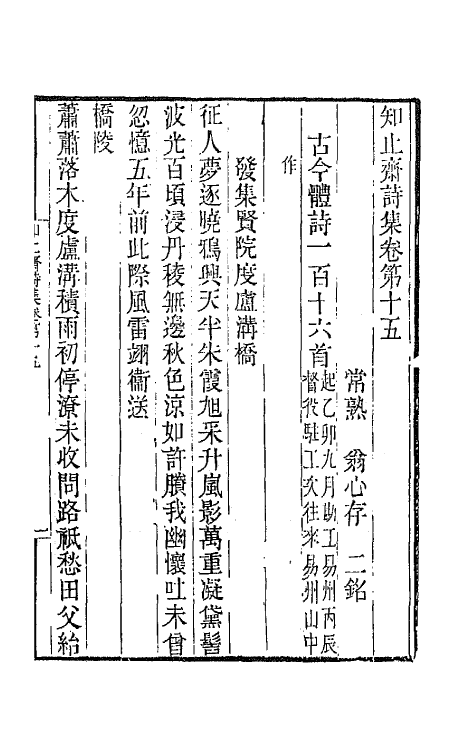 知止齋詩集卷第十五
常熟　翁心存　二銘
古今體詩一百十六首起乙卯九月勘工易州丙辰
督役駐工次往來易州山中
作
發集賢院度盧溝橋
征人夢逐曉鴉興天半朱霞旭采升嵐影萬重凝黛髻
波光百頃浸丹稜無邊秋色涼如許賸我幽懷吐未曾
忽憶五年前此際風雷翊衞送
橋陵
蕭蕭落木度盧溝積雨初停潦未收問路祇愁田父紿